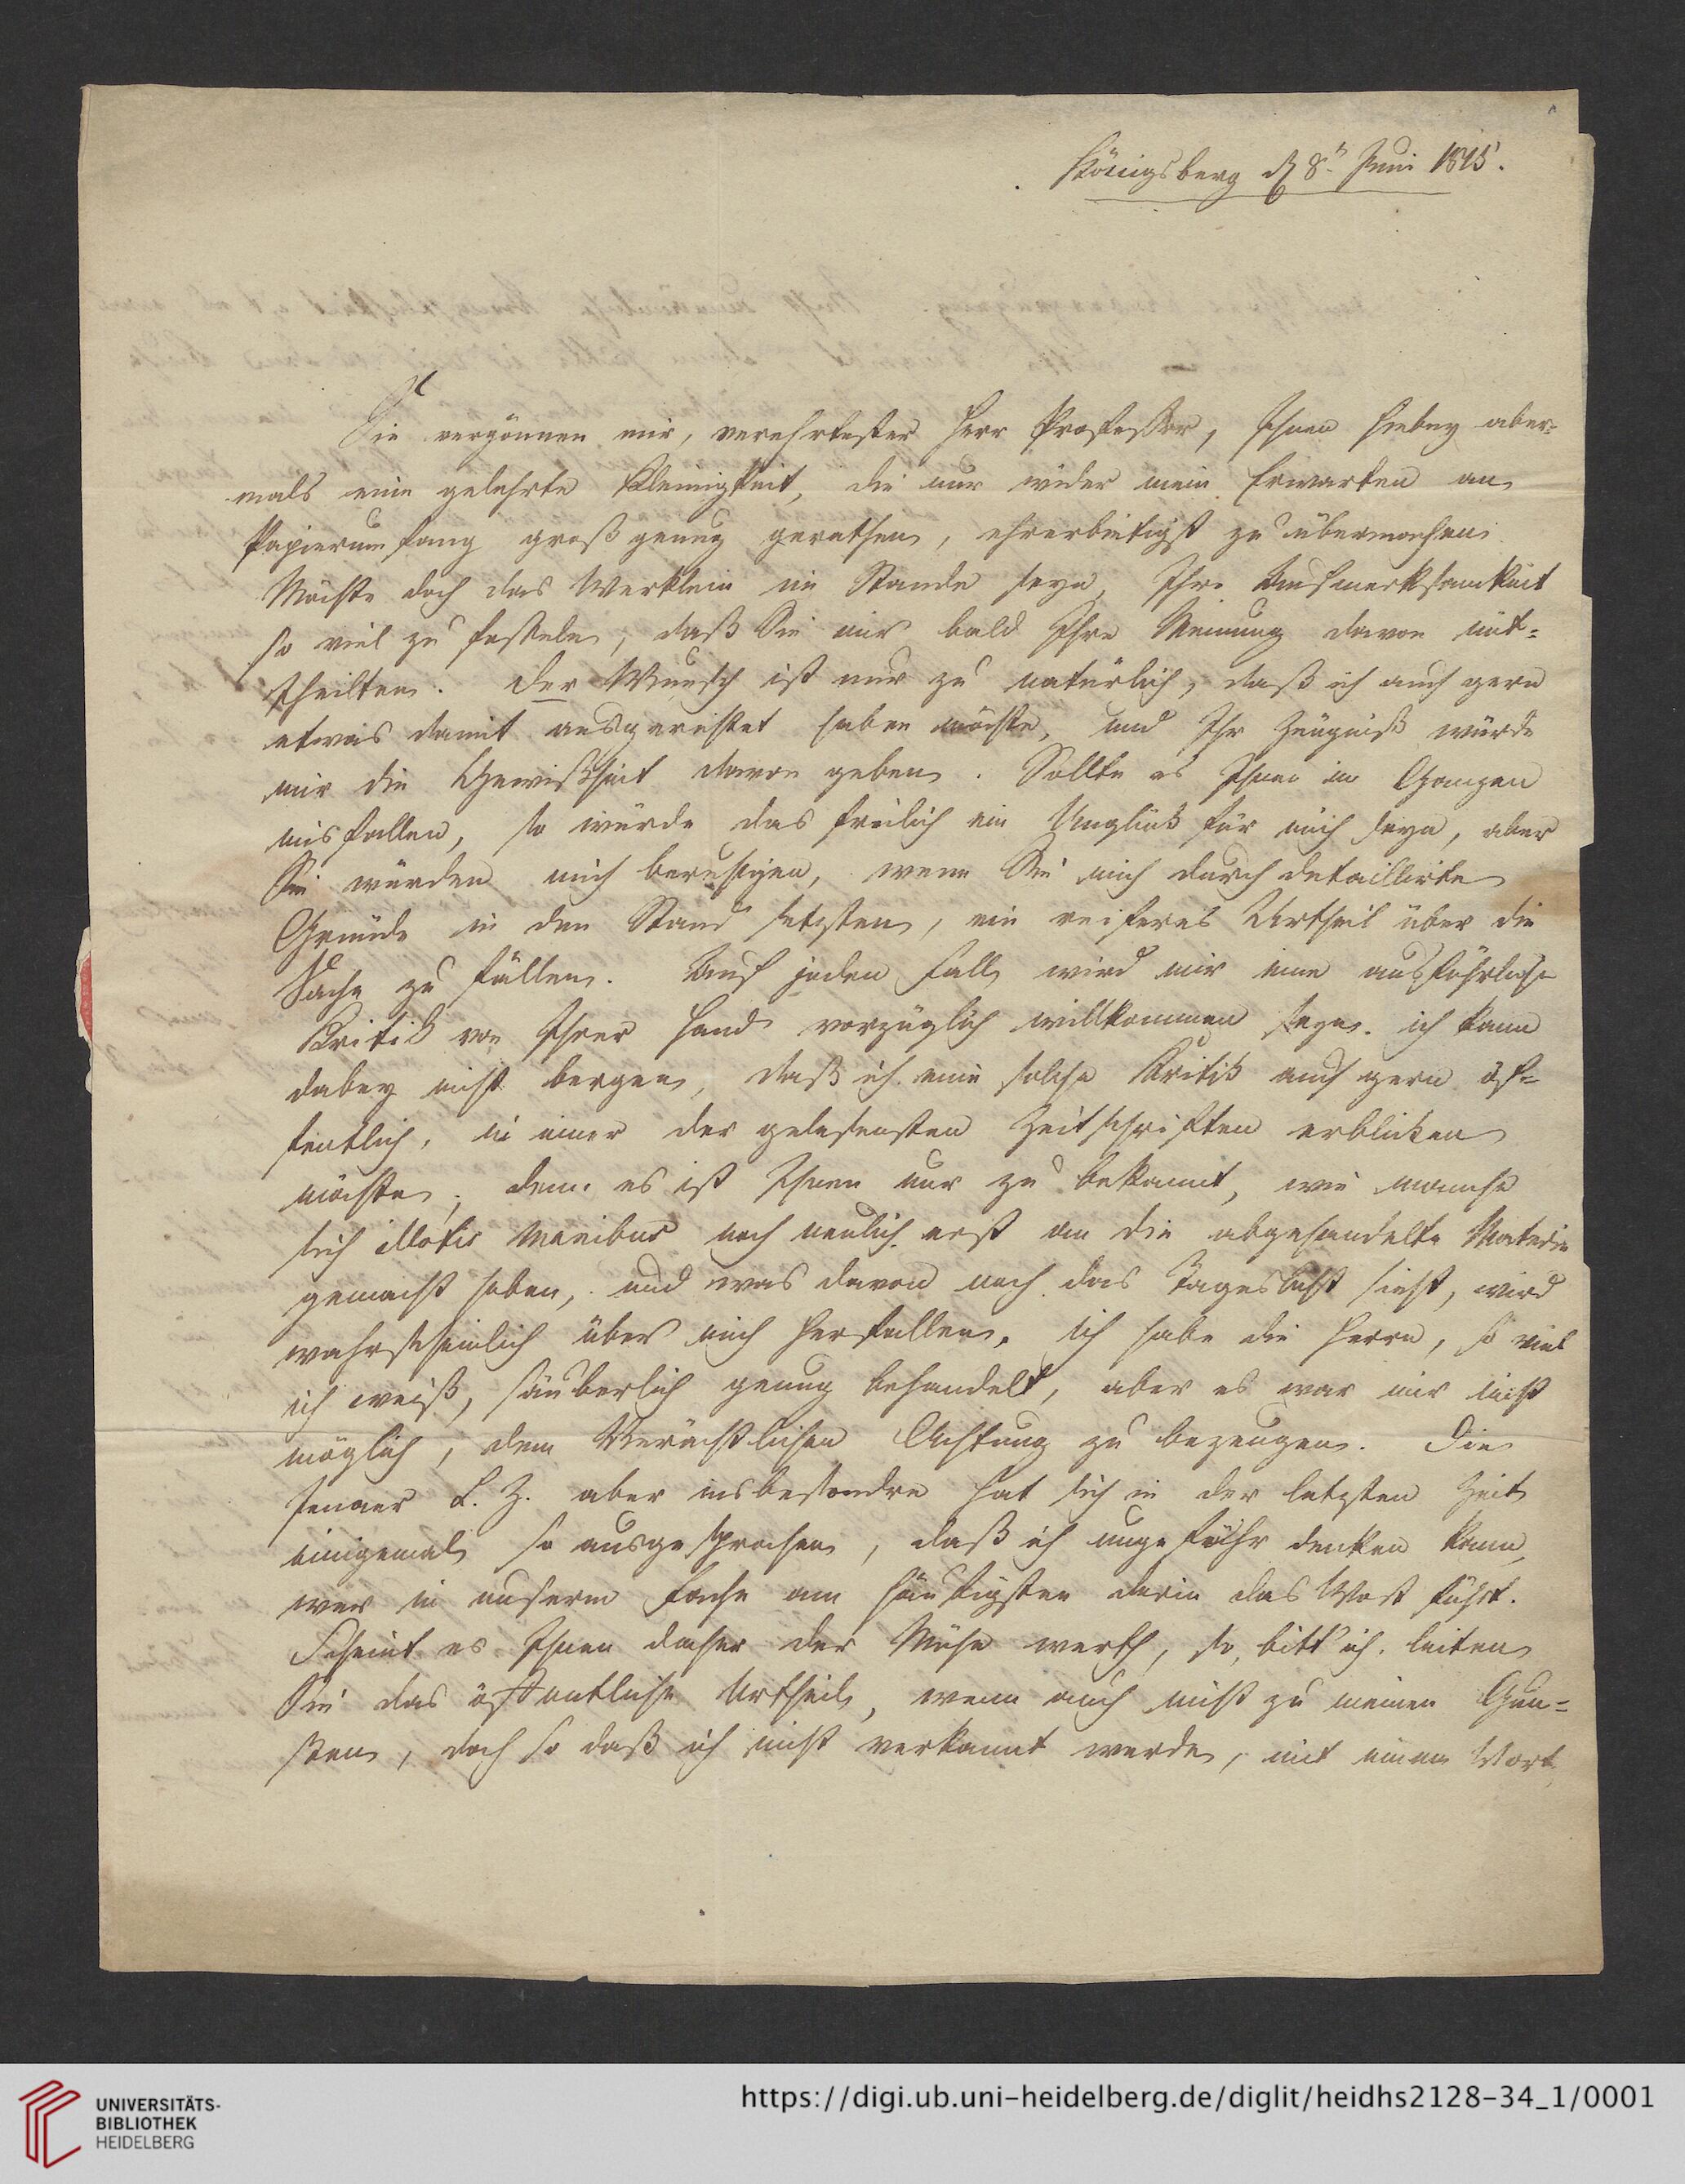 Königsberg d 8ⁿ Juni 1815.
Sie vergönnen mir, verehrtester Herr Professor, Ihnen hiebey aber=
mals eine gelehrte Kleinigkeit, die nur wider mein Erwarten an
Papierumfang groß genug gerathen, ehrerbietigst zu übermachen.
Möchte doch das Werklein im Stande seyn, Ihre Aufmerksamkeit
so viel zu fesseln, daß Sie mir bald Ihre Meinung davon mit=
theilten. Der Wunsch ist nur zu natürlich, daß ich auch gern
etwas damit ausgerichtet haben möchte, und Ihr Zeugniß würde
mir die Gewißheit davon geben. Sollte es Ihnen im Ganzen
misfallen, so würde das freilich ein Unglück für mich seyn, aber
Sie würden mich beruhigen, wenn Sie mich durch detaillirte
Gründe in den Stand setzten, ein reiferes Urtheil über die
Sache zu fällen. Auf jeden Fall wird mir eine ausführliche
Kritik von Ihrer Hand vorzüglich willkommen seyn. ich kann
dabey nicht bergen, daß ich eine solche Kritik auch gern öf=
fentlich, in einer der gelesensten Zeitschriften erblicken
möchte; denn es ist Ihnen nur zu bekannt, wie manche
sich illotis manibus noch neulich erst an die abgehandelte Materie
gemacht haben, und was davon noch das Tageslicht sieht, wird
wahrscheinlich über mich herfallen. Ich habe die Herrn, so viel
ich weiß, säuberlich genug behandelt, aber es war mir nicht
möglich, dem Verächtlichen Achtung zu bezeugen. Die
Jenaer L. Z. aber insbesondre hat sich in der letzten Zeit
einigemal so ausgesprochen, daß ich ungefähr denken kann,
wer in unserm Fache am häufigsten darin das Wort führt.
Scheint es Ihnen daher der Mühe werth, so, bitt' ich, leiten
Sie das öffentliche Urtheil, wenn auch nicht zu meinen Gun=
sten, doch so daß ich nicht verkannt werde, mit einem Wort
UNIVERSITÄTS-
BIBLIOTHEK
HEIDELBERG
https://digi.ub.uni-heidelberg.de/diglit/heidhs2128-34_1/0001